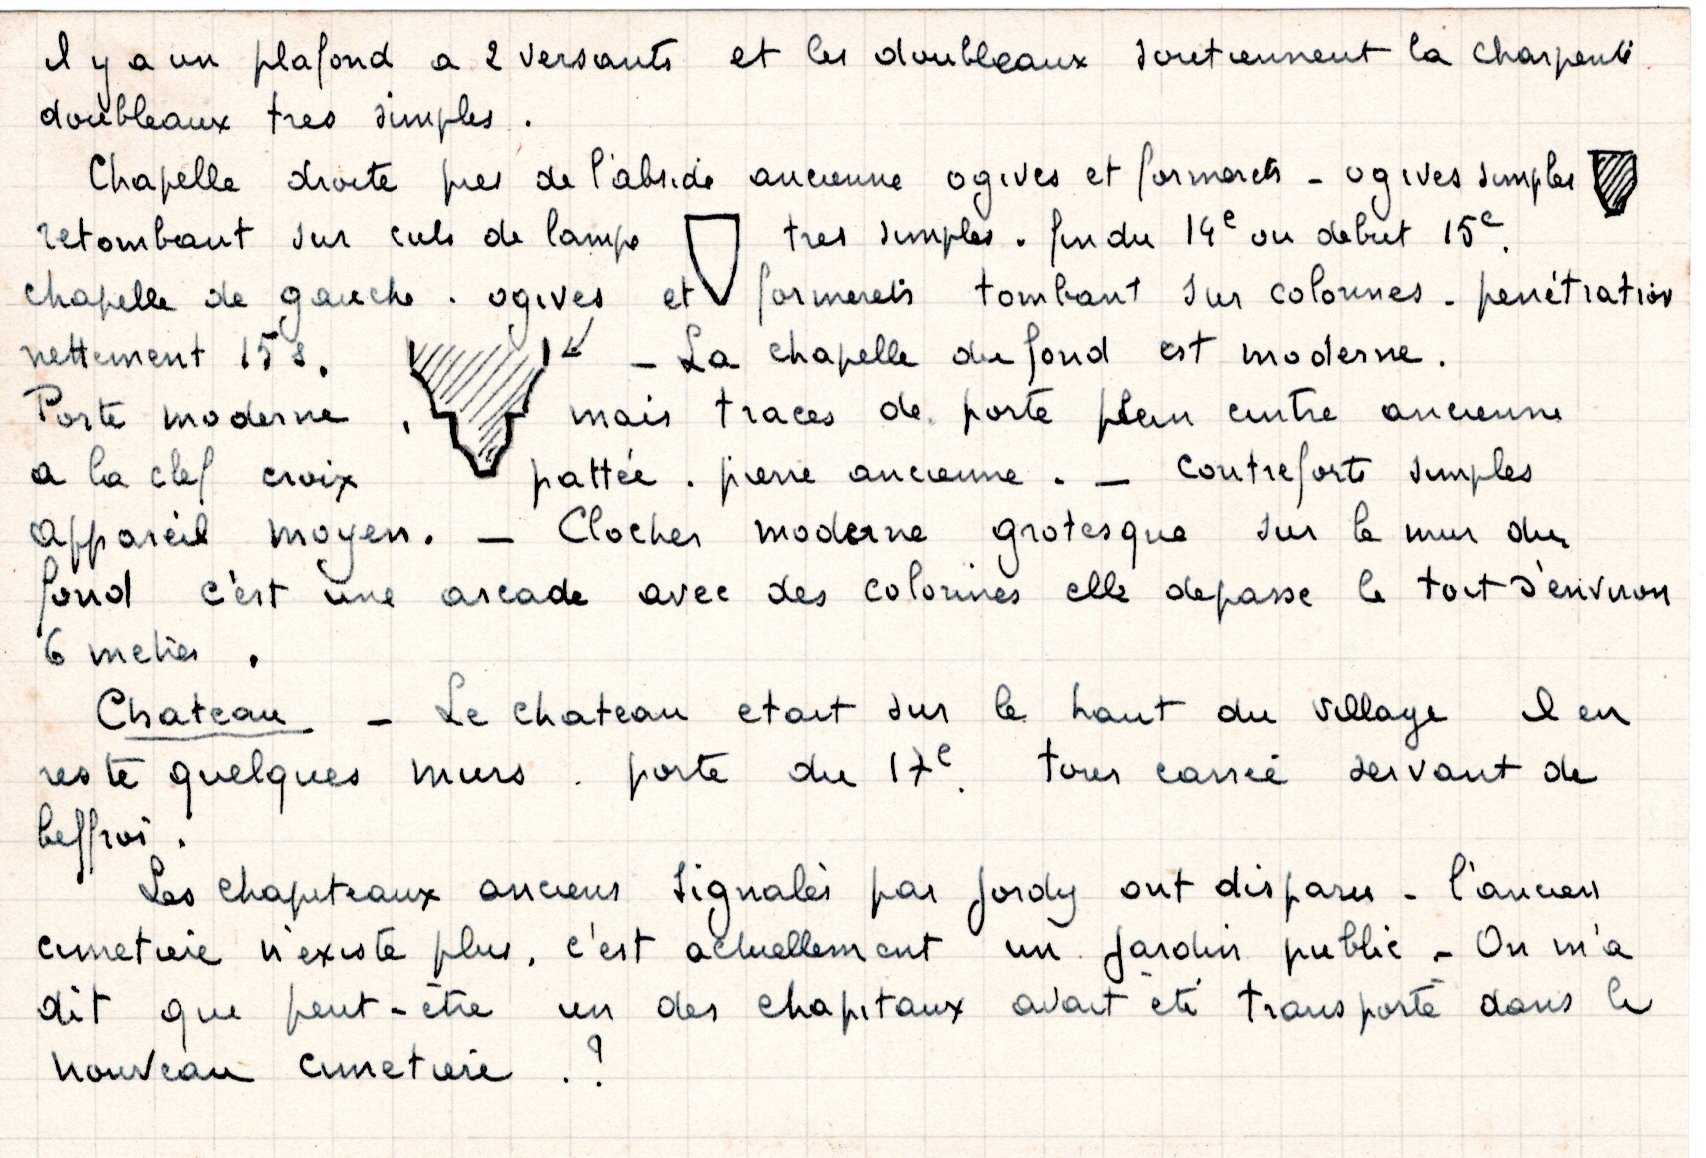 il y a un plafond a 2 versants et les doubleaux soutiennent la charpente
doubleaux tres simples.
Chapelle droite pres de l'abside ancienne ogives et formerets - ogives simples
retombant sur culs de lampe tres simples. fin du 14e ou debut 15e.
chapelle de gauche. ogives et formerets tombant sur colonnes - penétration
nettement 15 s. - La chapelle du fond est moderne.
Porte moderne, mais traces de porte plein cintre ancienne
a la clef croix pattée. pierre ancienne. - contreforts simples
appareil moyen. - Clocher moderne grotesque sur le mur du
fond c'est une arcade avec des colonnes elle depasse le toit d'environ
6 metres.
Chateau - Le chateau etait sur le haut du village il en
reste quelques murs. porte du 17e. tour carrée servant de
beffroi.
Les chapiteaux anciens signalés par Jordy ont disparu - l'ancien
cimetiere n'existe plus, c'est actuellement un jardin public - On m'a
dit que peut-être un des chapitaux avait été transporté dans le
nouveau cimetiere . ?